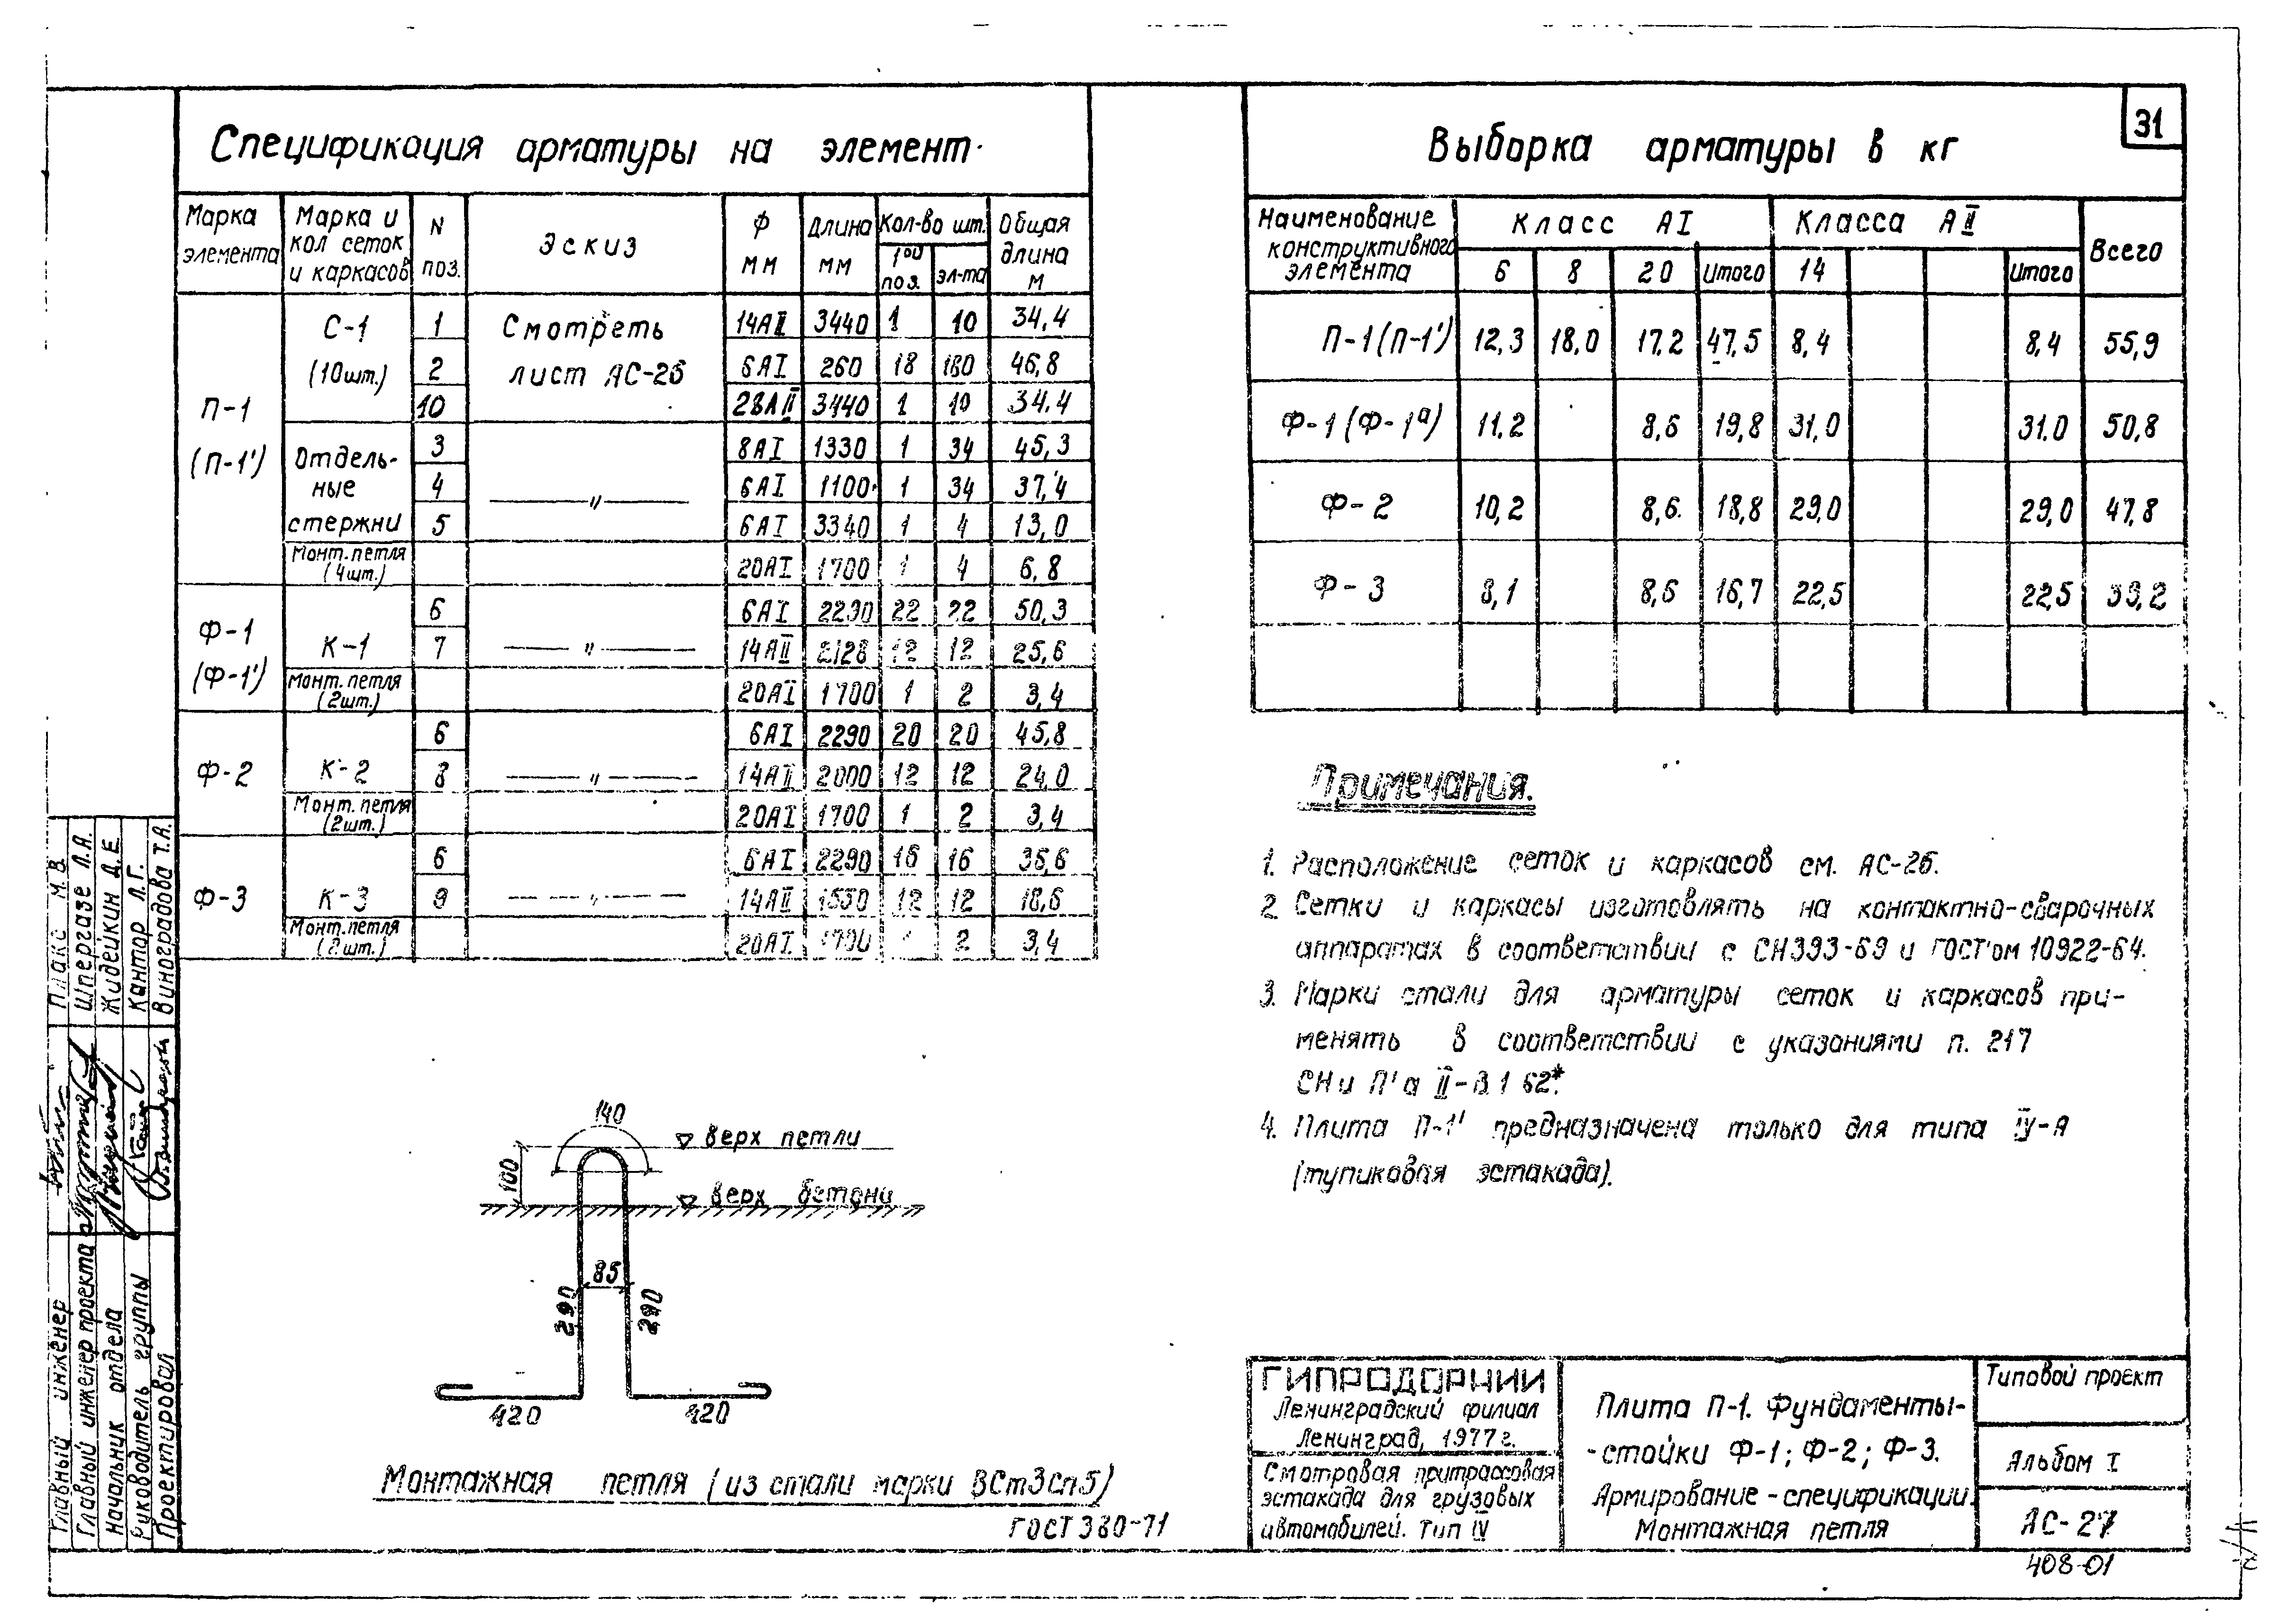 31
Спецификация арматуры на элемент.
Марка элемента | Марка и кол сеток и каркасов | N поз. | Эскиз | Ф мм | Длина мм | Кол-во шт. 1ой поз. | эл-та | Общая длина м
П-1 (П-1') | С-1 (10шт.) | 1 | Смотреть лист АС-26 | 14АII | 3440 | 1 | 10 | 34,4
2 | 6АI | 260 | 18 | 180 | 46,8
10 | 28АII | 3440 | 1 | 10 | 34.4
Отдельные стержни | 3 | —〃— | 8АI | 1330 | 1 | 34 | 45,3
4 | 6АI | 1100 | 1 | 34 | 37,4
5 | 6АI | 3340 | 1 | 4 | 13,0
Монт. петля (4шт.) | 20АI | 1700 | 1 | 4 | 6,8
Ф-1 (Ф-1') | К-1 | 6 | —〃— | 6АI | 2290 | 22 | 22 | 50,3
7 | 14АII | 2128 | 12 | 12 | 25,6
Монт. петля (2шт.) | 20АI | 1700 | 1 | 2 | 3,4
Ф-2 | К-2 | 6 | —〃— | 6АI | 2290 | 20 | 20 | 45,8
8 | 14АII | 2000 | 12 | 12 | 24,0
Монт. петля (2шт.) | 20АI | 1700 | 1 | 2 | 3,4
Ф-3 | К-3 | 6 | —〃— | 6АI | 2290 | 16 | 16 | 36,6
9 | 14АII | 1550 | 12 | 12 | 18,6
Монт. петля (2шт.) | 20АI | 1700 | 1 | 2 | 3,4
Выборка арматуры в кг
Наименование конструктивного элемента | Класс АI | Класса АII | Всего
6 | 8 | 20 | Итого | 14 | Итого
П-1 (П-1') | 12,3 | 18,0 | 17,2 | 47,5 | 8,4 | 8,4 | 55,9
Ф-1 (Ф-1а) | 11,2 | 8,6 | 19,8 | 31,0 | 31.0 | 50,8
Ф-2 | 10,2 | 8,6 | 18,8 | 29,0 | 29,0 | 47,8
Ф-3 | 8,1 | 8,6 | 16,7 | 22,5 | 22,5 | 39,2
Примечания.
1. Расположение сеток и каркасов см. АС-26.
2. Сетки и каркасы изготовлять на контактно-сварочных
аппаратах в соответствии с СН393-69 и ГОСТ'ом 10922-64.
3. Марки стали для арматуры сеток и каркасов при-
менять в соответствии с указаниями п. 217
СНиП'а II-В.1 62*.
4. Плита П-1' предназначена только для типа IV-А
(тупиковая эстакада).
140
100
верх петли
верх бетона
85
290
290
420
420
Монтажная петля (из стали марки ВСт3сп5)
ГОСТ 380-71
Главный инженер Плакс М.В.
Главный инженер проекта Шпергазе Л.А.
Начальник отдела Жидейкин Д.Е.
Руководитель группы Кантор Л.Г.
Проектировал Виноградова Т.А.
ГИПРОДОРНИИ
Ленинградский филиал
Ленинград, 1977г.
Смотровая притрассовая
эстакада для грузовых
автомобилей. Тип IV
Плита П-1. Фундаменты-
-стойки Ф-1; Ф-2; Ф-3.
Армирование-спецификации.
Монтажная петля
Типовой проект
Альбом I
АС-27
408-01